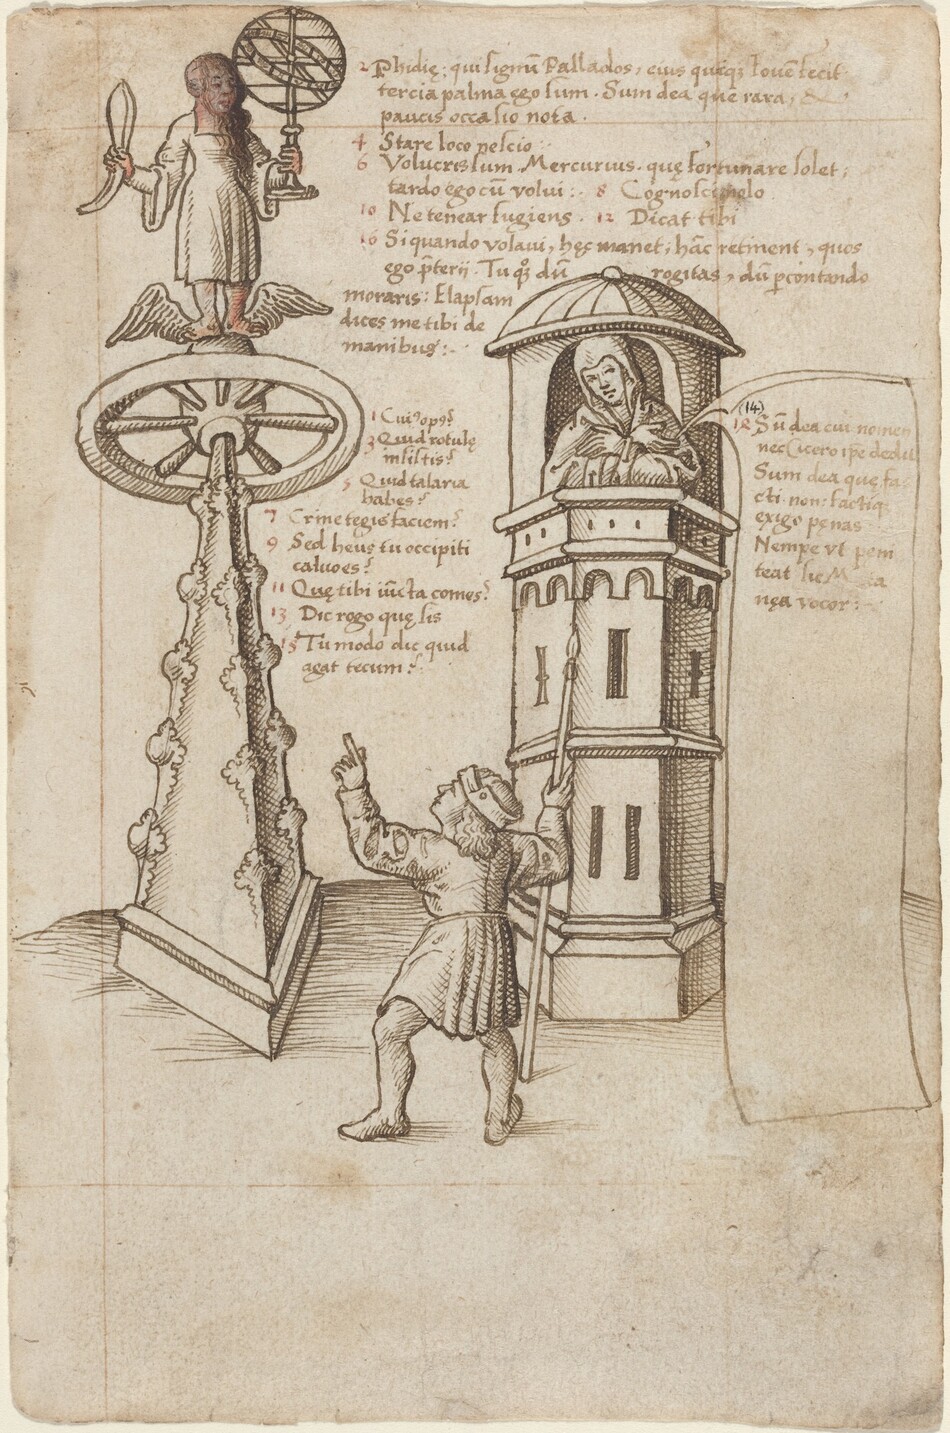 2 Phidię: qui signū Pallados, eius quiqz Iouē fecit
tercia palma ego sum. Sum dea que rara, &
paucis occasio nota.
4 Stare loco nescio:
6 Volucris sum. Mercurius. quę fortunare solet;
tardo ego cū volui:. 8 Cognosci nolo
10 Ne tenear fugiens. 12 Dicat tibi
16 Si quando volaui, hęc manet; hāc retinent, quos
ego p̄terii. Tu qz dū rogitas, dū p̱contando
moraris: Elapsam
dices me tibi de
manibus:.
1 Cui9 op9?
3 Quid rotulę
insistis?
5 Quid talaria
habes?
7 Crine tegis faciem?
9 Sed heus tu occipiti
caluo es?
11 Quę tibi iūcta comes?
13 Dic rogo quę sis
15 Tu modo dic quid
agat tecum?
(14)
12 Sū dea cui nomen
nec Cicero ip̄e dedit
Sum dea quę fa-
cti. non: factiqz
exigo pęnas
Nempe vt peni
teat sic
nęa vocor: